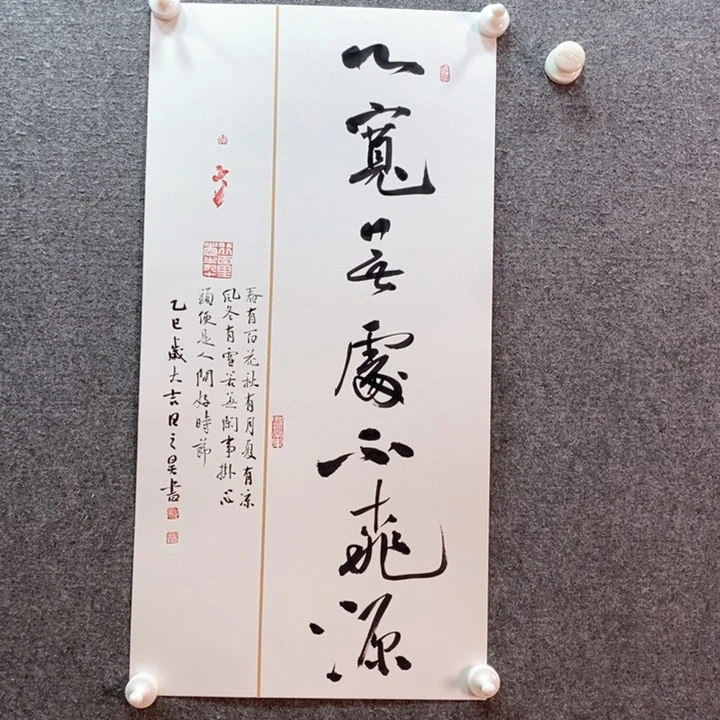 心寬無處不桃源
春有百花秋有月夏有涼
風冬有雪若無閑事掛心
頭便是人間好時節
乙巳歲大吉日之昊書